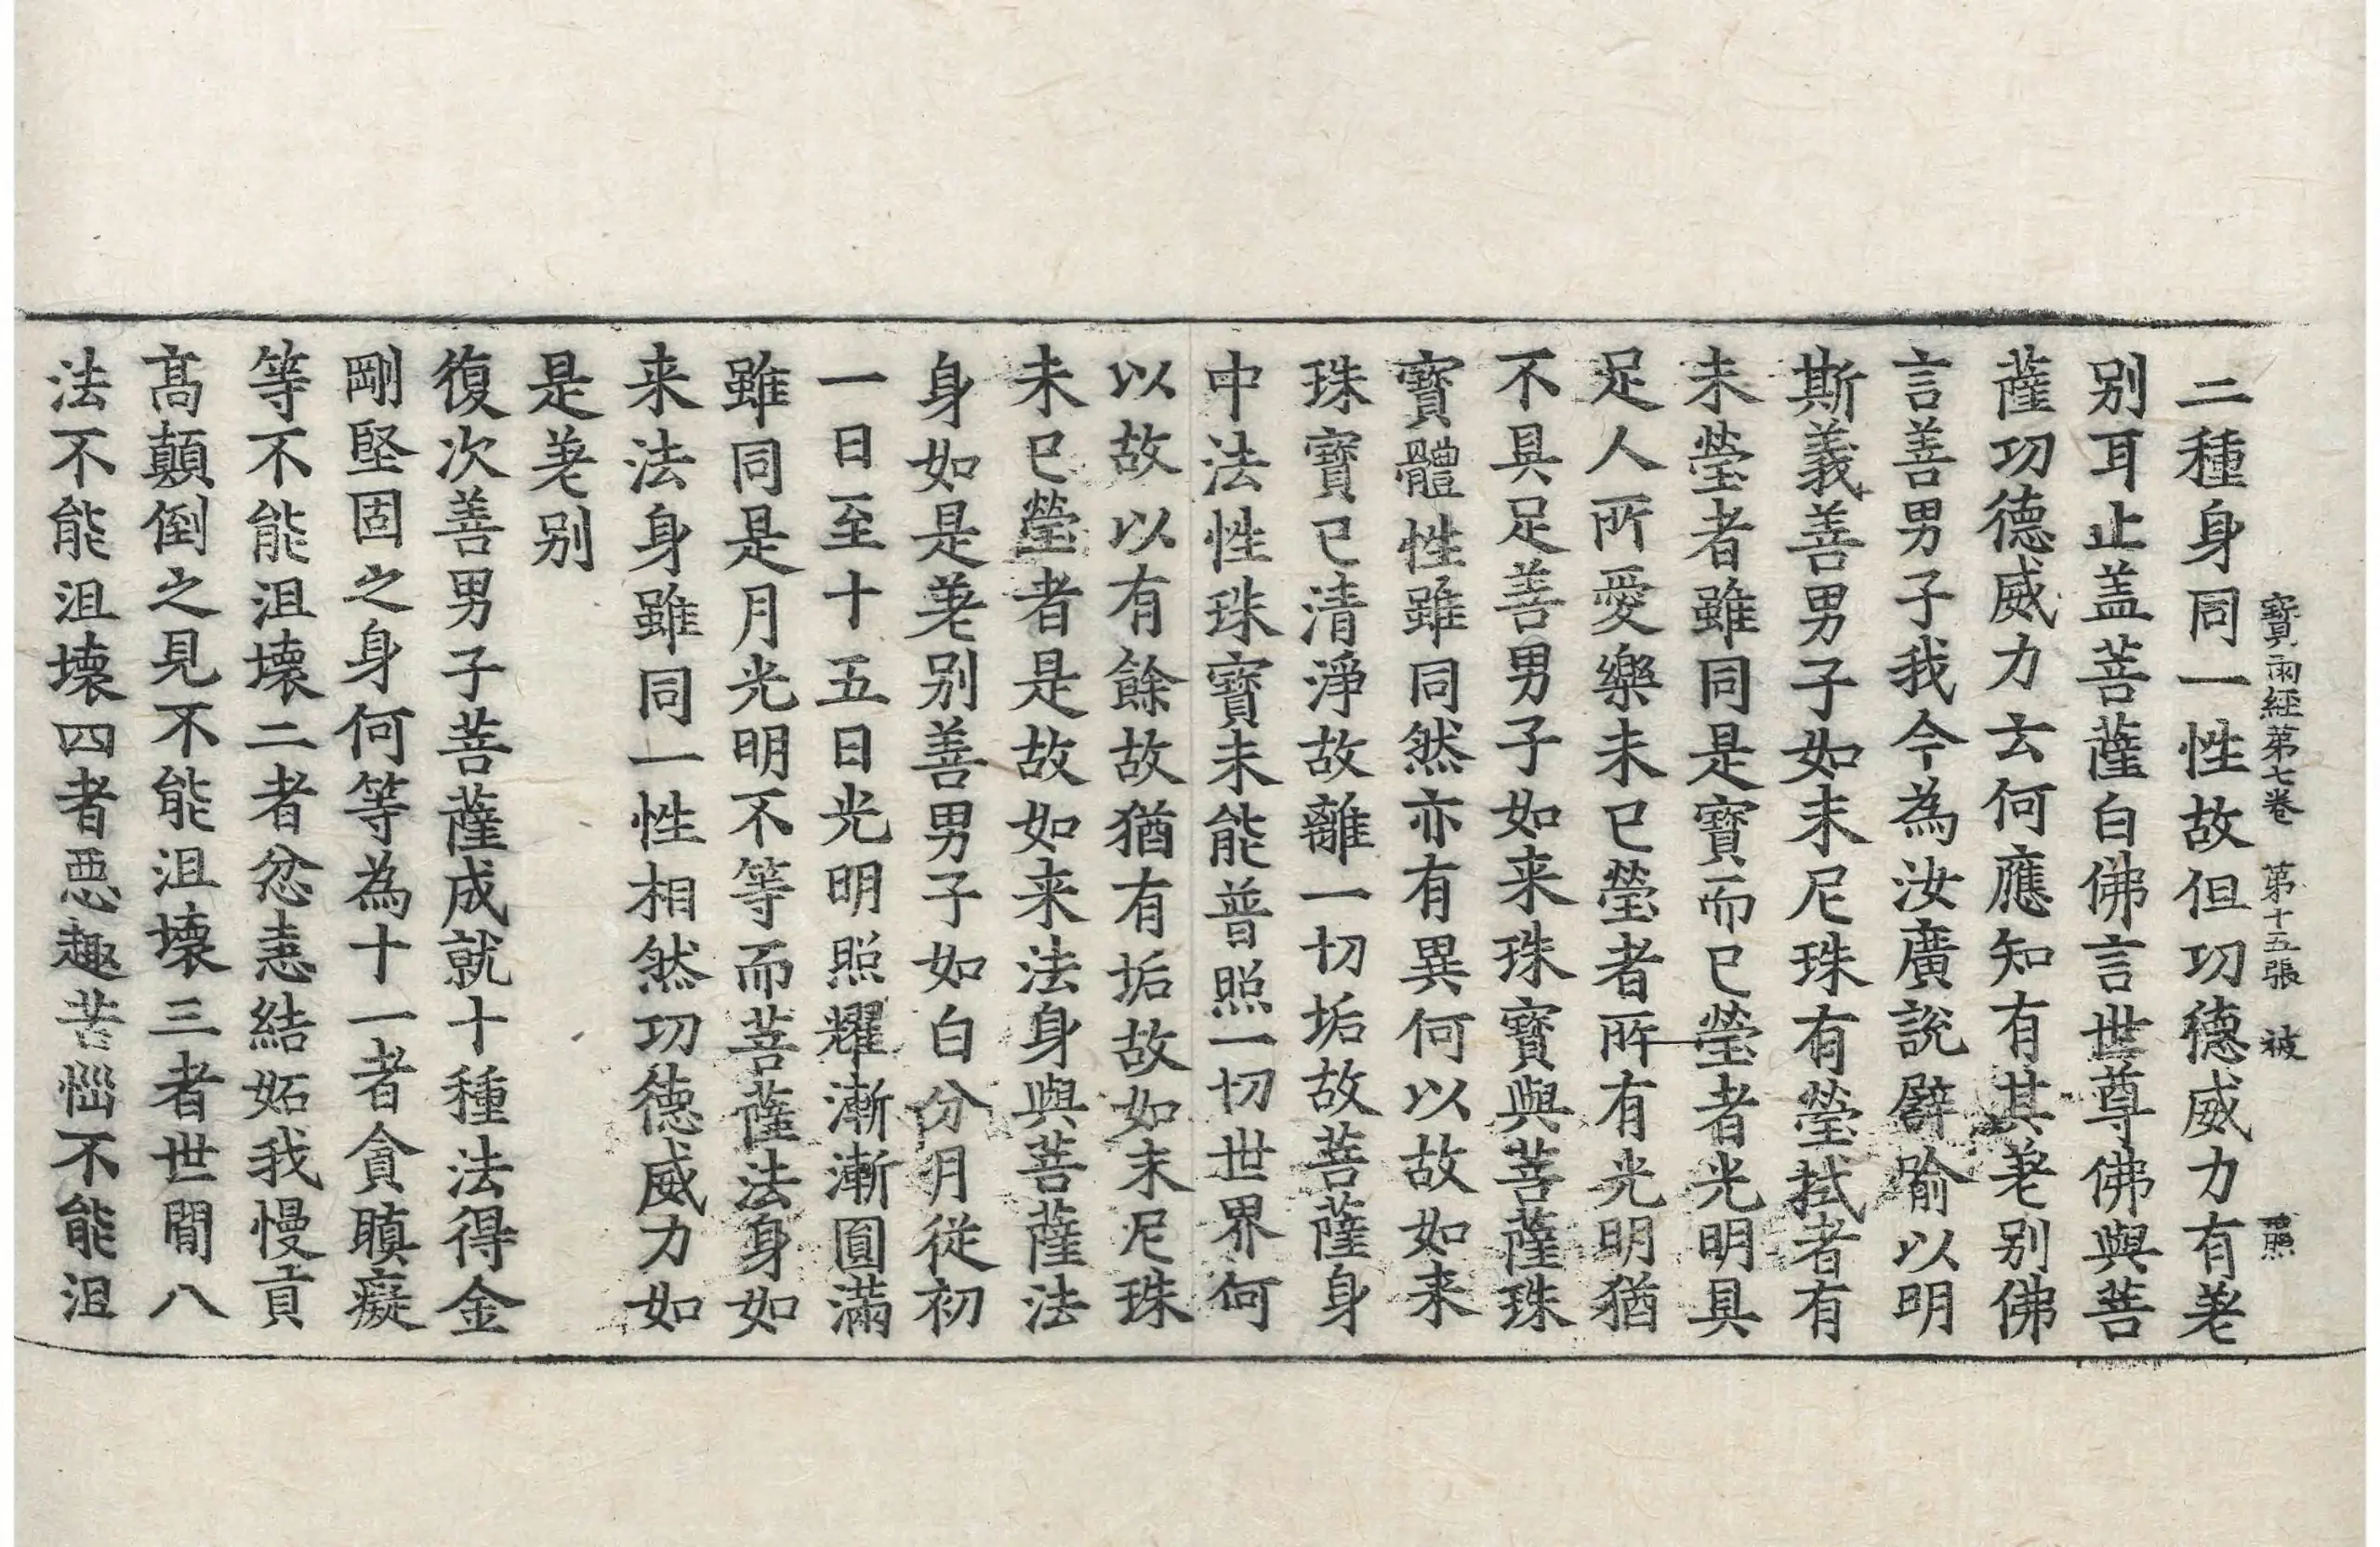 寶雨經第七卷 第十五張 被 照
二種身同一性故但功德威力有差
别耳止盖菩薩白佛言世尊佛與菩
薩功德威力云何應知有其差别佛
言善男子我今為汝廣說譬喻以明
斯義善男子如末尼珠有瑩拭者有
未瑩者雖同是寶而已瑩者光明具
足人所愛樂未已瑩者所有光明猶
不具足善男子如来珠寶與菩薩珠
寶體性雖同然亦有異何以故如来
珠寶已清淨故離一切垢故菩薩身
中法性珠寶未能普照一切世界何
以故以有餘故猶有垢故如末尼珠
未已瑩者是故如来法身與菩薩法
身如是差别善男子如白分月從初
一日至十五日光明照耀漸漸圓滿
雖同是月光明不等而菩薩法身如
来法身雖同一性相然功德威力如
是差别
復次善男子菩薩成就十種法得金
剛堅固之身何等為十一者貪瞋癡
等不能沮壞二者忿恚結妬我慢貢
髙顛倒之見不能沮壞三者世間八
法不能沮壞四者惡趣苦惱不能沮